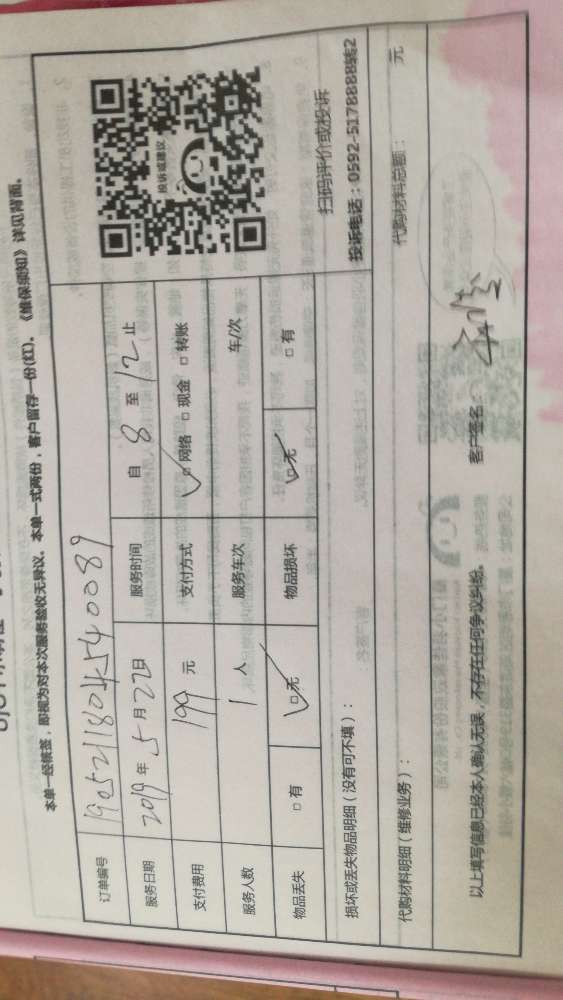 本单一经核签，即视为对本次服务验收无异议。本单一式两份，客户留存一份(红)。《维保须知》详见背面。
订单编号 1905211804540089
服务日期 2019年5月22日 服务时间 自 8 至 12 止
支付费用 199 元 支付方式 □网络 □现金 □转账
服务人数 1 人 服务车次 车/次
物品丢失 □有 □无 物品损坏 □无 □有
投诉或建议
扫码评价或投诉
投诉电话：0592-5178888转2
损坏或丢失物品明细（没有可不填）：
代购材料明细（维修业务）： 代购材料总额： 元
以上填写信息已经本人确认无误，不存在任何争议纠纷。 客户签名：